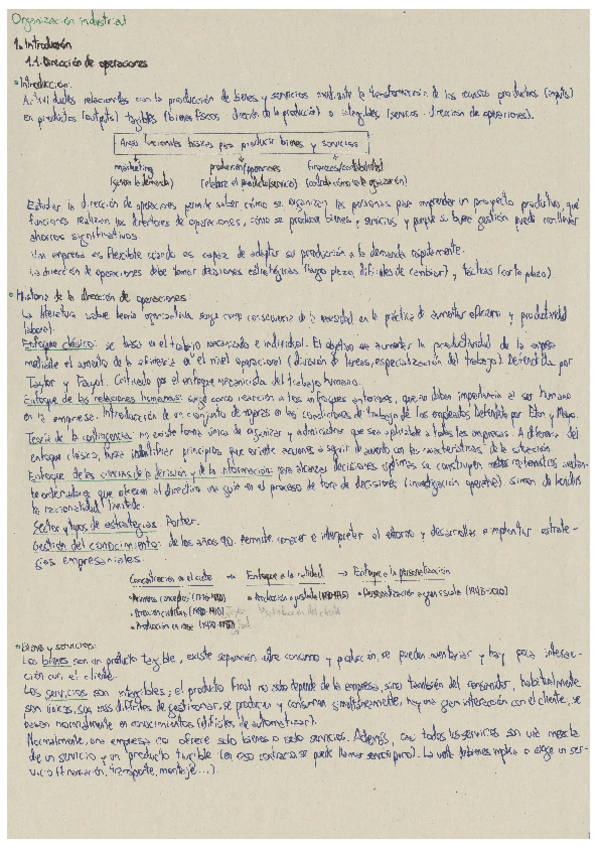 Organización industrial
1. Introducción
1.1. Dirección de operaciones
Introducción:
Actividades relacionadas con la producción de bienes y servicios mediante la transformación de los recursos productivos (inputs)
en productos (outputs) tangibles (bienes físicos - dirección de la producción) o intangibles (servicios - dirección de operaciones).
Áreas funcionales básicas para producir bienes y servicios
marketing producción/operaciones finanzas/contabilidad
(genera la demanda) (elabora el producto/servicio) (controla cómo va la organización)
Estudiar la dirección de operaciones permite saber cómo se organizan las personas para emprender un proyecto productivo, qué
funciones realizan los directores de operaciones, cómo se producen bienes y servicios y porque su buena gestión puede conllevar
ahorros significativos.
Una empresa es flexible cuando es capaz de adaptar su producción a la demanda rápidamente.
La dirección de operaciones debe tomar decisiones estratégicas (largo plazo, difíciles de cambiar) y tácticas (corto plazo)
Historia de la dirección de operaciones
La literatura sobre teoría organizativa surge como consecuencia de la necesidad en la práctica de aumentar eficiencia y productividad
laboral.
Enfoque clásico: se basa en el trabajo mecanizado e individual. El objetivo es aumentar la productividad de la empresa
mediante el aumento de la eficiencia en el nivel operacional (división de tareas, especialización del trabajo). Defendida por
Taylor y Fayol. Criticado por el enfoque mecanicista del trabajo humano.
Enfoque de las relaciones humanas: surge como reacción a los enfoques anteriores, que no daban importancia al ser humano
en la empresa. Introducción de un conjunto de mejoras en las condiciones de trabajo de los empleados. Defendida por Elton y Mayo.
Teoría de la contingencia: no existe forma única de organizar y administrar que sea aplicable a todas las empresas. A diferencia del
enfoque clásico, busca identificar principios que oriente acciones a seguir de acuerdo con las características de la situación.
Enfoque de las ciencias de la decisión y de la información: para alcanzar decisiones óptimas se construyen modelos matemáticos mediante
ordenadores que ofrecen al directivo una guía en el proceso de toma de decisiones (investigación operativa). Simon
la racionalidad limitada.
Sector y tipos de estrategias: Porter.
Gestión del conocimiento: de los años 90. Permite conocer e interpretar el entorno y desarrollar e implantar estrate-
gias empresariales.
Concentración en el coste → Enfoque a la calidad → Enfoque a la personalización
Primeros conceptos (1776-1880) Producción ajustada (1980-1995) Personalización a gran escala (1995-2020)
Era científica (1880-1910) Taylor Satisfacción del cliente
Producción en masa (1910-1980)
Bienes y servicios:
Los bienes son un producto tangible, existe separación entre consumo y producción, se pueden inventariar y hay poca interac-
ción con el cliente.
Los servicios son intangibles; el producto final no solo depende de la empresa, sino también del consumidor, habitualmente
son únicos, son más difíciles de gestionar, se producen y consumen simultáneamente, hay una gran interacción con el cliente, se
basan normalmente en conocimientos (difíciles de automatizar).
Normalmente, una empresa no ofrece solo bienes o solo servicios. Además, casi todos los servicios son una mezcla
de un servicio y un producto tangible (en caso contrario, se puede llamar servicio puro). La venta de bienes implica o exige un ser-
vicio (financiación, transporte, montaje...).